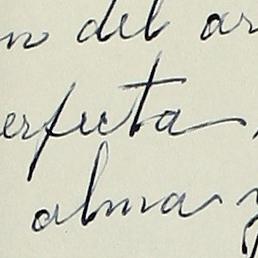 n del ar
erfecta,
alma y